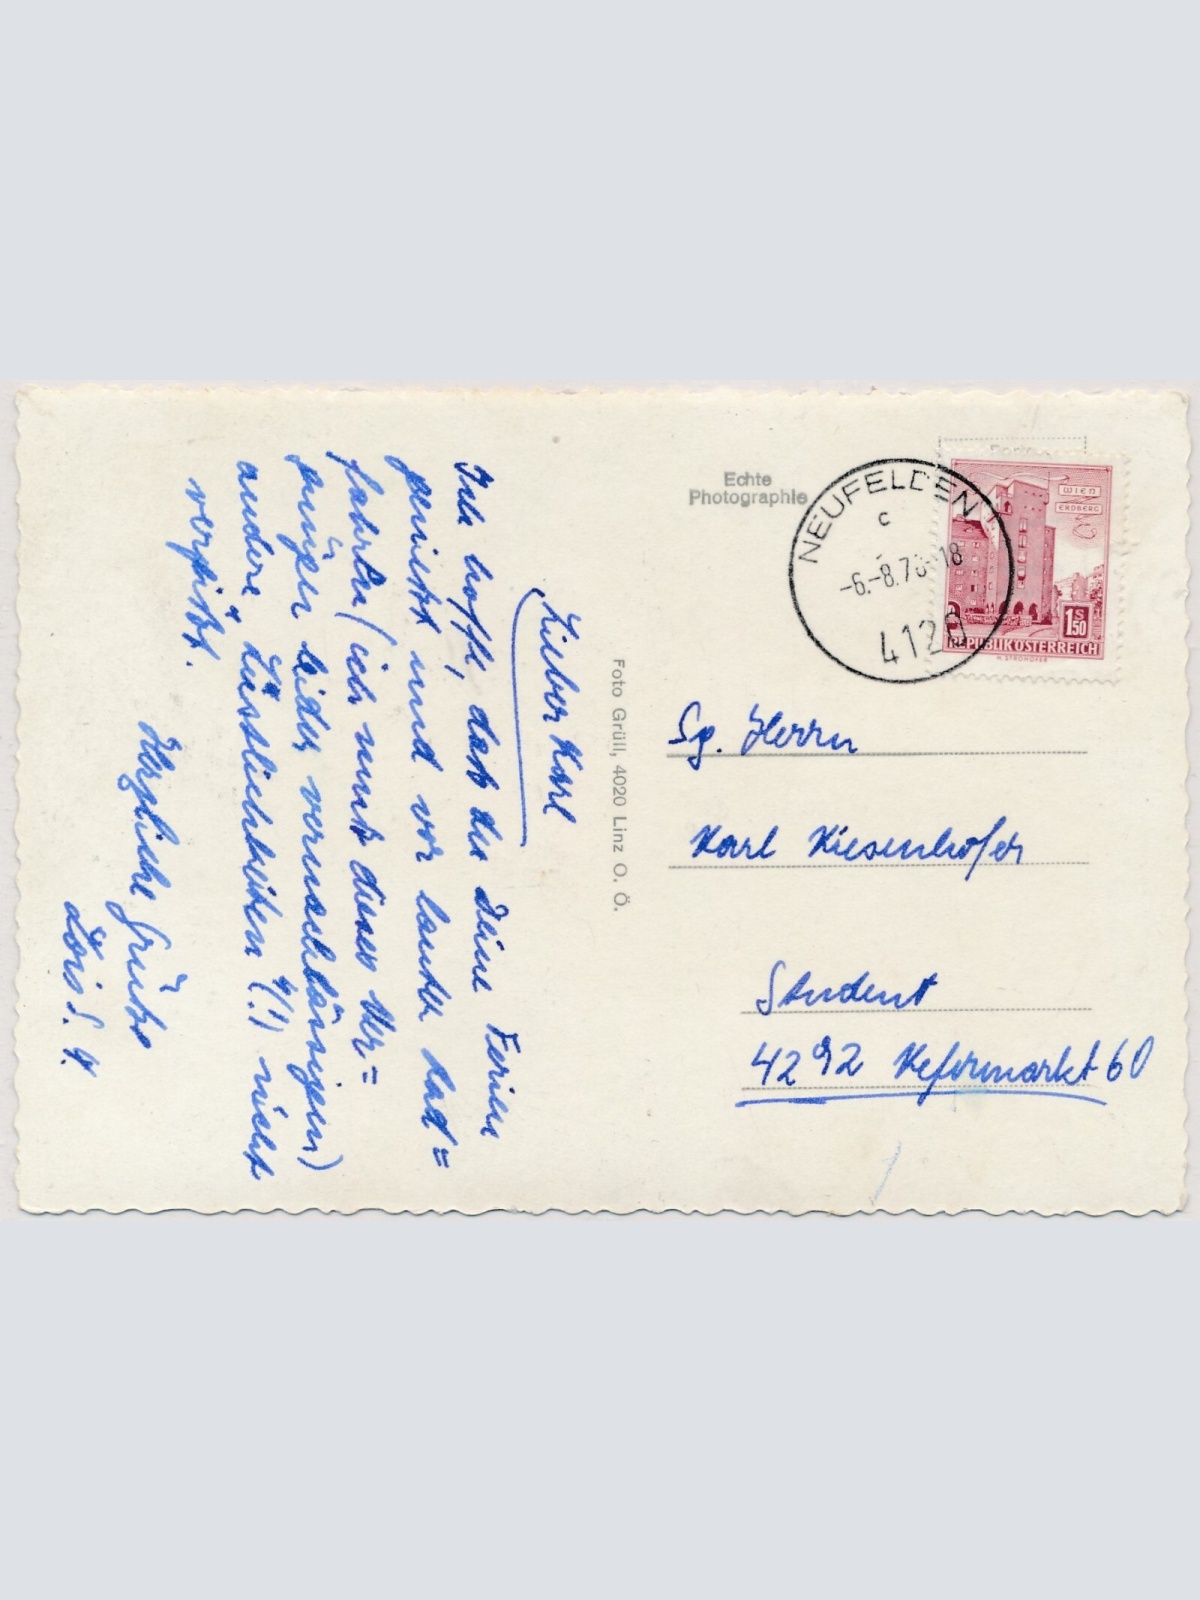 Lieber Karl
Ich hoffe, daß du deine Ferien
genießt und vor lauter Rad=
fahren (ich muß dieses Ver=
gnügen leider vernachlässigen)
andere "Lässlichkeiten"(!) nicht
vergißt.
Herzliche Grüße
Foto Grüll, 4020 Linz O. Ö.
Echte
Photographie
NEUFELDEN
c
-6.-8.7 -18
4120
WIEN
ERDBERG
S
1.50
REPUBLIK ÖSTERREICH
H. STROHOFER
Sg. Herrn
Karl Kiesenhofer
Student
4292 Kefermarkt 60